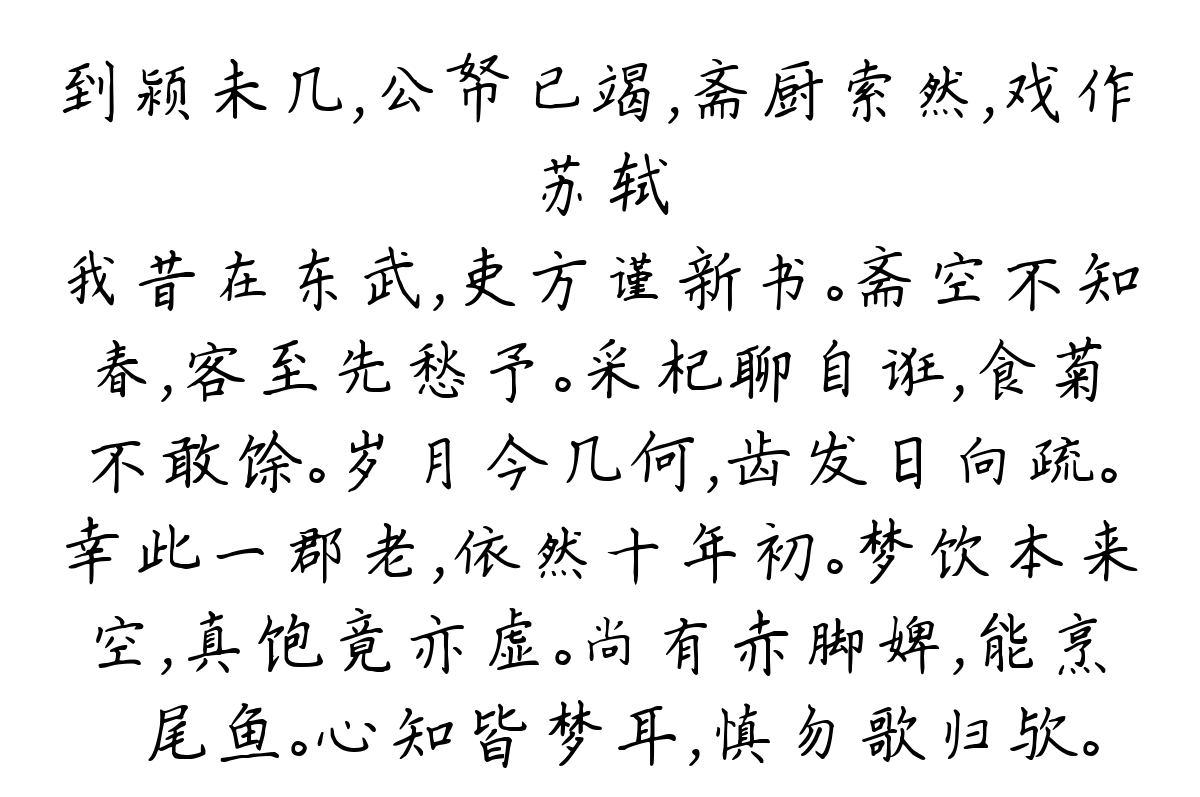 到颍未几,公帑已竭,斋厨索然,戏作
苏轼
我昔在东武,吏方谨新书。斋空不知
春,客至先愁予。采杞聊自诳,食菊
不敢馀。岁月今几何,齿发日向疏。
幸此一郡老,依然十年初。梦饮本来
空,真饱竟亦虚。尚有赤脚婢,能烹
尾鱼。心知皆梦耳,慎勿歌归欤。